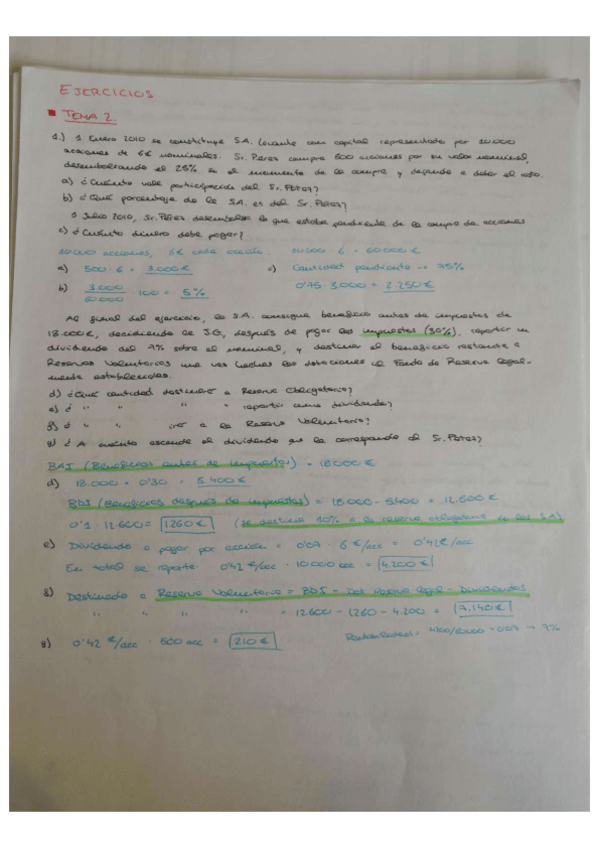 EJERCICIOS
TEMA 2.
1.) 1 Enero 2010 se constituye S.A. Levante con capital representado por 10.000
acciones de 6€ nominales. Sr. Pérez compra 500 acciones por su valor nominal,
desembolsando el 25% en el momento de la compra y dejando a deber el resto.
a) ¿Cuánto vale participación del Sr. Pérez?
b) ¿Qué porcentaje de la S.A. es del Sr. Pérez?
1 Julio 2010, Sr. Pérez desembolsa lo que estaba pendiente de la compra de acciones
c) ¿Cuánto dinero debe pagar?
10.000 acciones, 6€ cada acción. 10.000 · 6 = 60.000 €
a) 500 · 6 = 3.000 € c) Cantidad pendiente → 75%
b) 3.000/60.000 · 100 = 5% 0'75 · 3.000 = 2.250 €
Al final del ejercicio, la S.A. consigue beneficio antes de impuestos de
18.000€, decidiendo la J.G, después de pagar los impuestos (30%), repartir un
dividendo del 7% sobre el nominal, y destinar el beneficio restante a
Reservas Voluntarias una vez hechas las dotaciones al Fondo de Reserva legal-
mente establecidas.
d) ¿Qué cantidad destinará a Reserva Obligatoria?
e) ¿ " " repartir como dividendo?
f) ¿ " " irá a la Reserva Voluntaria?
g) ¿A cuánto asciende el dividendo que le corresponde al Sr. Pérez?
BAI (Beneficios antes de impuestos) = 18.000 €
d) 18.000 · 0'30 = 5.400 €
BDI (Beneficios después de impuestos) = 18.000 - 5.400 = 12.600 €
0'1 · 12.600 = 1.260 € (se destina 10% a la reserva obligatoria en las SA)
e) Dividendo a pagar por acción = 0'07 · 6 €/acc = 0'42 €/acc
En total se reparte 0'42 €/acc · 10.000 acc = 4.200 €
f) Destinado a Reserva Voluntaria = BDI - Dot Reserva Legal - Dividendos
" " " " = 12.600 - 1.260 - 4.200 = 7.140 €
g) 0'42 €/acc · 500 acc = 210 € Rentabilidad = 4200/60000 = 0'07 → 7%